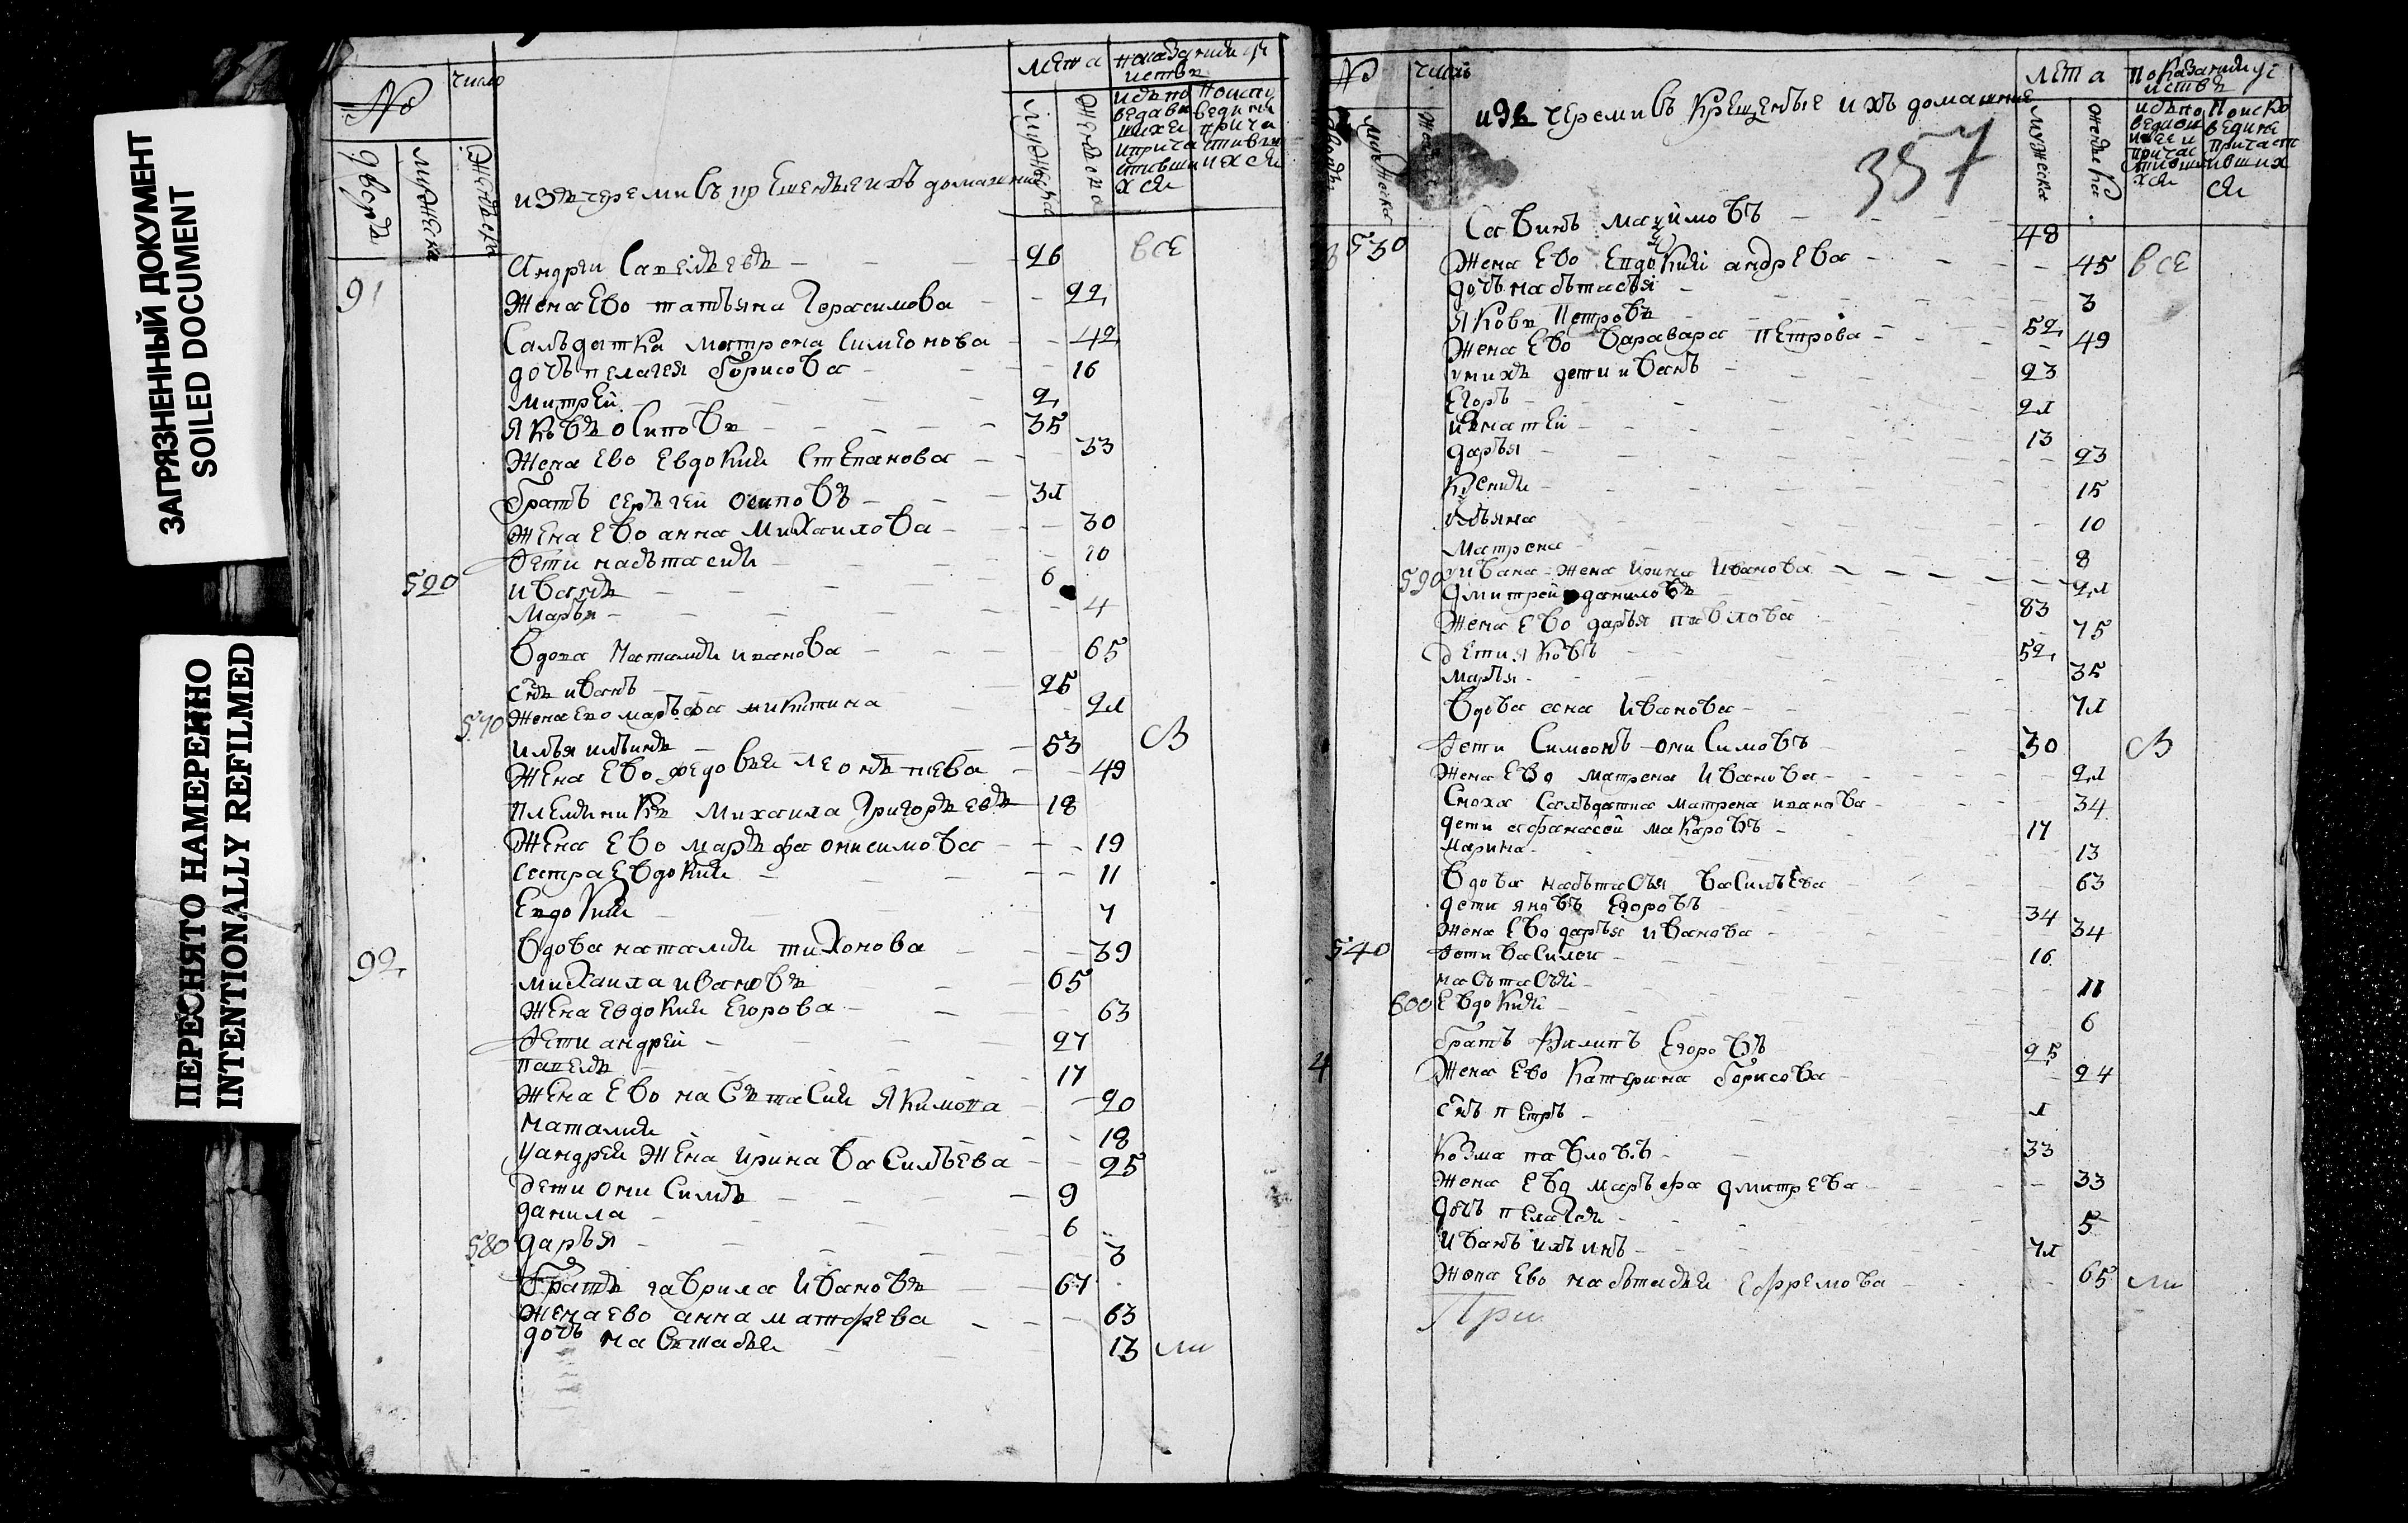 ЗАГРЯЗНЕННЫЙ ДОКУМЕНТ
SOILED DOCUMENT
ПЕРЕСНЯТО НАМЕРЕННО
INTENTIONALLY REFILMED
№ число
лета
дворъ
мужеска
женска
изъ черемисъ крещеные ихъ домашние
Андреи Савельевъ 26 все
91 Жена Ево татьяна Герасимова 22
Салъдатка матрена Симеонова 42
дочь пелагея борисова 16
митрей 2
Яковъ осиповъ 35
Жена Ево Евдокия Степанова 33
братъ сергеи осиповъ 31
Жена ево анна михаилова 30
дети настасия 10
520 иванъ 6
марья 4
вдова наталия иванова 65
снъ иванъ 25
570 Жена ево марфа микитина 21
илья ильинъ 53 св
Жена Ево федосья леонтьева 49
племяникъ михаила Григорьевъ 18
Жена Ево марфа онисимова 19
сестра Евдокия 11
Евдокия 7
вдова наталия тихонова 39
92 михаила ивановъ 65
Жена евдокия Егорова 63
дети андрей 27
павелъ 17
Жена Ево настасия Якимова 20
наталия 18
у андрея Жена ирина васильева 25
дети онисимъ 9
данила 6
580 дарья 3
братъ гаврила ивановъ 67
Жена ево анна матфеева 63
дочь настасья 13 ли
№ число
изъ черемисъ крещеные ихъ домашние
лета
мужеска
женска
357
Савинъ максимовъ 48
530 Жена Ево Евдокия андрева 45 все
дочь настасья 3
Яковъ Петровъ 52
Жена Ево варавара петрова 49
у нихъ дети иванъ 23
Егоръ 21
игнатей 13
дарья 23
ксения 15
ульяна 10
матрена 8
590 у ивана жена ирина иванова 21
дмитрей даниловъ 83
Жена Ево дарья павлова 75
дети яковъ 52
марья 35
вдова анна иванова 71
дети Симеонъ онисимовъ 30 св
Жена Ево матрена иванова 21
Сноха Салъдатка матрена иванова 34
дети афанасей макаровъ 17
марина 13
вдова настасья васильева 63
дети яковъ Егоровъ 34
Жена Ево дарья иванова 34
540 дети василеи 16
настасья 11
600 Евдокия 6
братъ Филипъ Егоровъ 25
Жена Ево катерина борисова 24
снъ петръ 1
козма павловъ 33
Жена Ево марфа дмитрева 33
дочь пелагея 5
иванъ ильинъ 71
Жена Ево настасья ефремова 65 ли
При